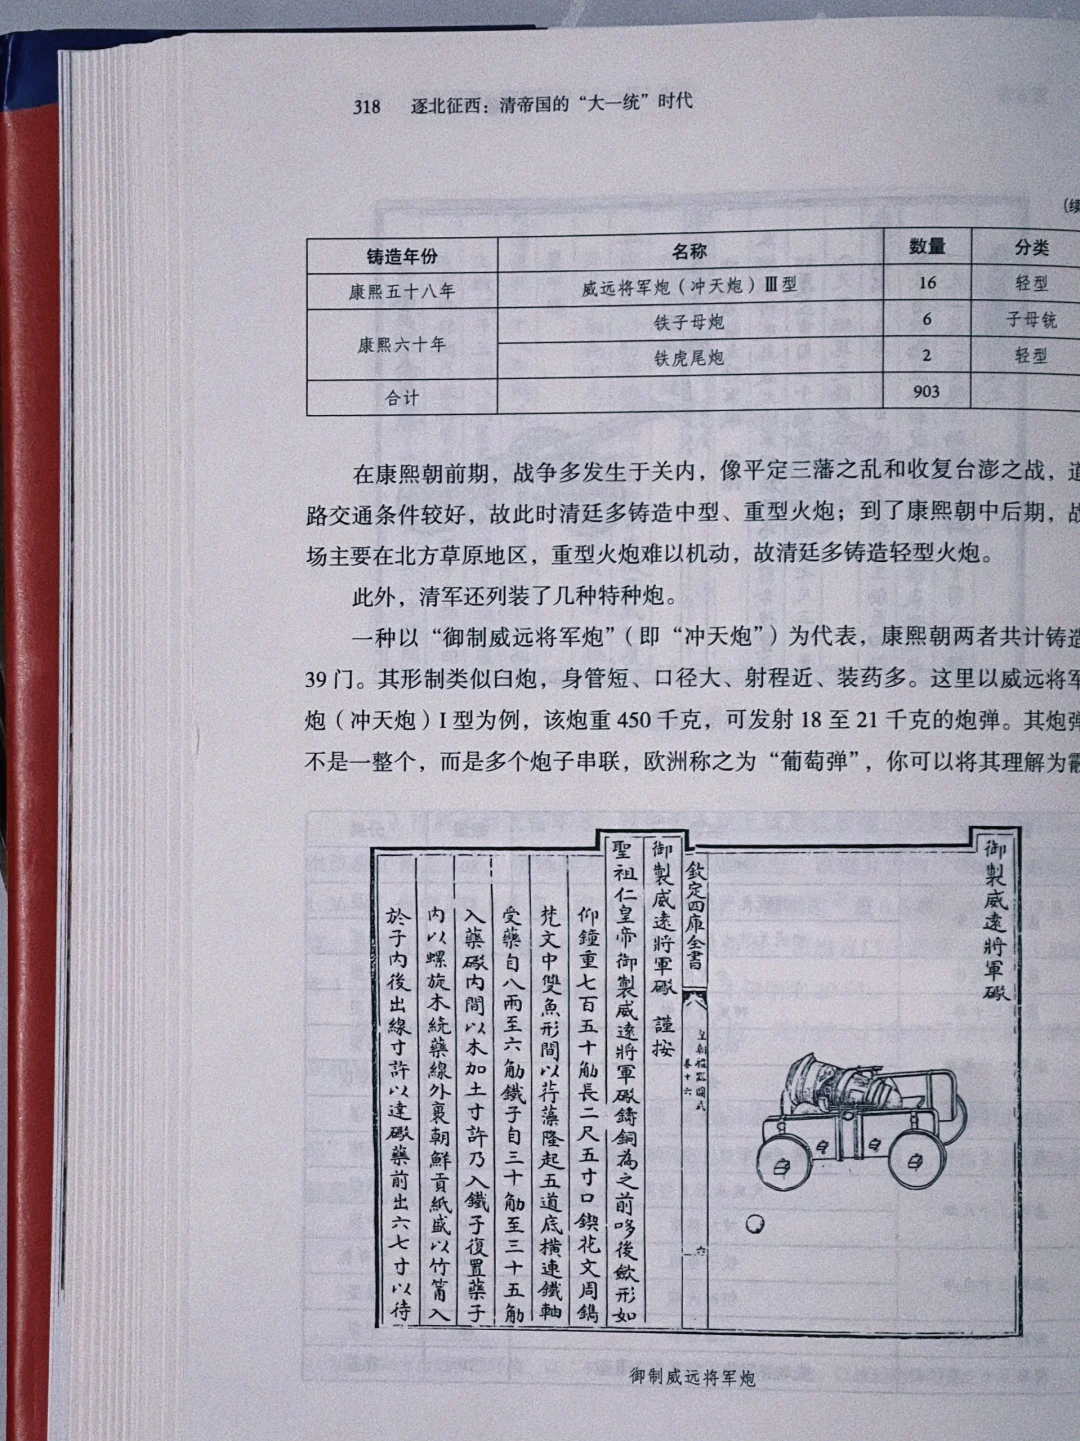 318 逐北征西：清帝国的“大一统”时代
（续
铸造年份 名称 数量 分类
康熙五十八年 威远将军炮（冲天炮）Ⅲ型 16 轻型
康熙六十年 铁子母炮 6 子母铳
铁虎尾炮 2 轻型
合计 903
在康熙朝前期，战争多发生于关内，像平定三藩之乱和收复台澎之战，道
路交通条件较好，故此时清廷多铸造中型、重型火炮；到了康熙朝中后期，战
场主要在北方草原地区，重型火炮难以机动，故清廷多铸造轻型火炮。
此外，清军还列装了几种特种炮。
一种以“御制威远将军炮”（即“冲天炮”）为代表，康熙朝两者共计铸造
39 门。其形制类似臼炮，身管短、口径大、射程近、装药多。这里以威远将军
炮（冲天炮）I 型为例，该炮重 450 千克，可发射 18 至 21 千克的炮弹。其炮弹
不是一整个，而是多个炮子串联，欧洲称之为“葡萄弹”，你可以将其理解为霰
御製威遠將軍礮
欽定四庫全書
皇朝禮器圖式
卷十六
六
御製威遠將軍礮 謹按
聖祖仁皇帝御製威遠將軍礮鑄銅為之前哆後斂形如
仰鐘重七百五十觔長二尺五寸口鍥花文周鐫
梵文中雙魚形間以荇藻隆起五道底橫連鐵軸
受藥自八兩至六觔鐵子自三十觔至三十五觔
入藥礮内間以木加土寸許乃入鐵子復置藥子
内以螺旋木繞藥線外裹朝鮮貢紙盛以竹筩入
於子内後出線寸許以達礮藥前出六七寸以待
御制威远将军炮